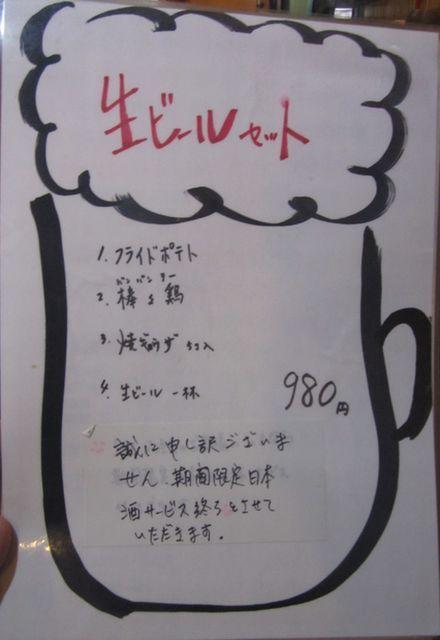 生ビールセット
1. フライドポテト
バンバンジー
2. 棒々鶏
3. 焼ギョウザ 5コ入
4. 生ビール 一杯
980円
誠に申し訳ございま
せん、期間限定日本
酒サービス終了とさせて
いただきます。